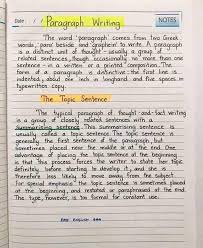 Date : / / Paragraph Writing NOTES
The word 'paragraph' comes from two Greek
words, 'para' beside and 'graphein' to write. A paragraph
is a distinct unit of thought - usually a group of
related sentences, though occasionally no more than one
sentence - in a written or a printed composition. The
form of a paragraph is distinctive: the first line is
indented, about one inch in longhand and five spaces in
typewritten copy.
The Topic Sentence
The typical paragraph of thought - and - fact writing
is a group of closely related sentences with a
summarising sentence. This summarising sentence is
usually called a topic sentence. The topic sentence is
generally the first sentence of the paragraph, but
sometimes placed near the middle or at the end. One
advantage of placing the topic sentence at the beginning
is that this process forces the writer to state her topic
definitely before starting to develop it, and she is
therefore less likely to move away from the subject.
For special emphasis the topic sentence is sometimes placed
at the beginning, and restated or paraphrased at the end.
The type, however, is too formal for constant use.